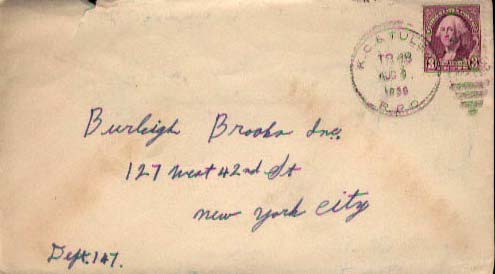 K.C. & TUL
TR 48
AUG 9
1936
R.P.O.
3 3
Burleigh Brooks Inc.
127 West 42nd St
New York City
Dept. 147.